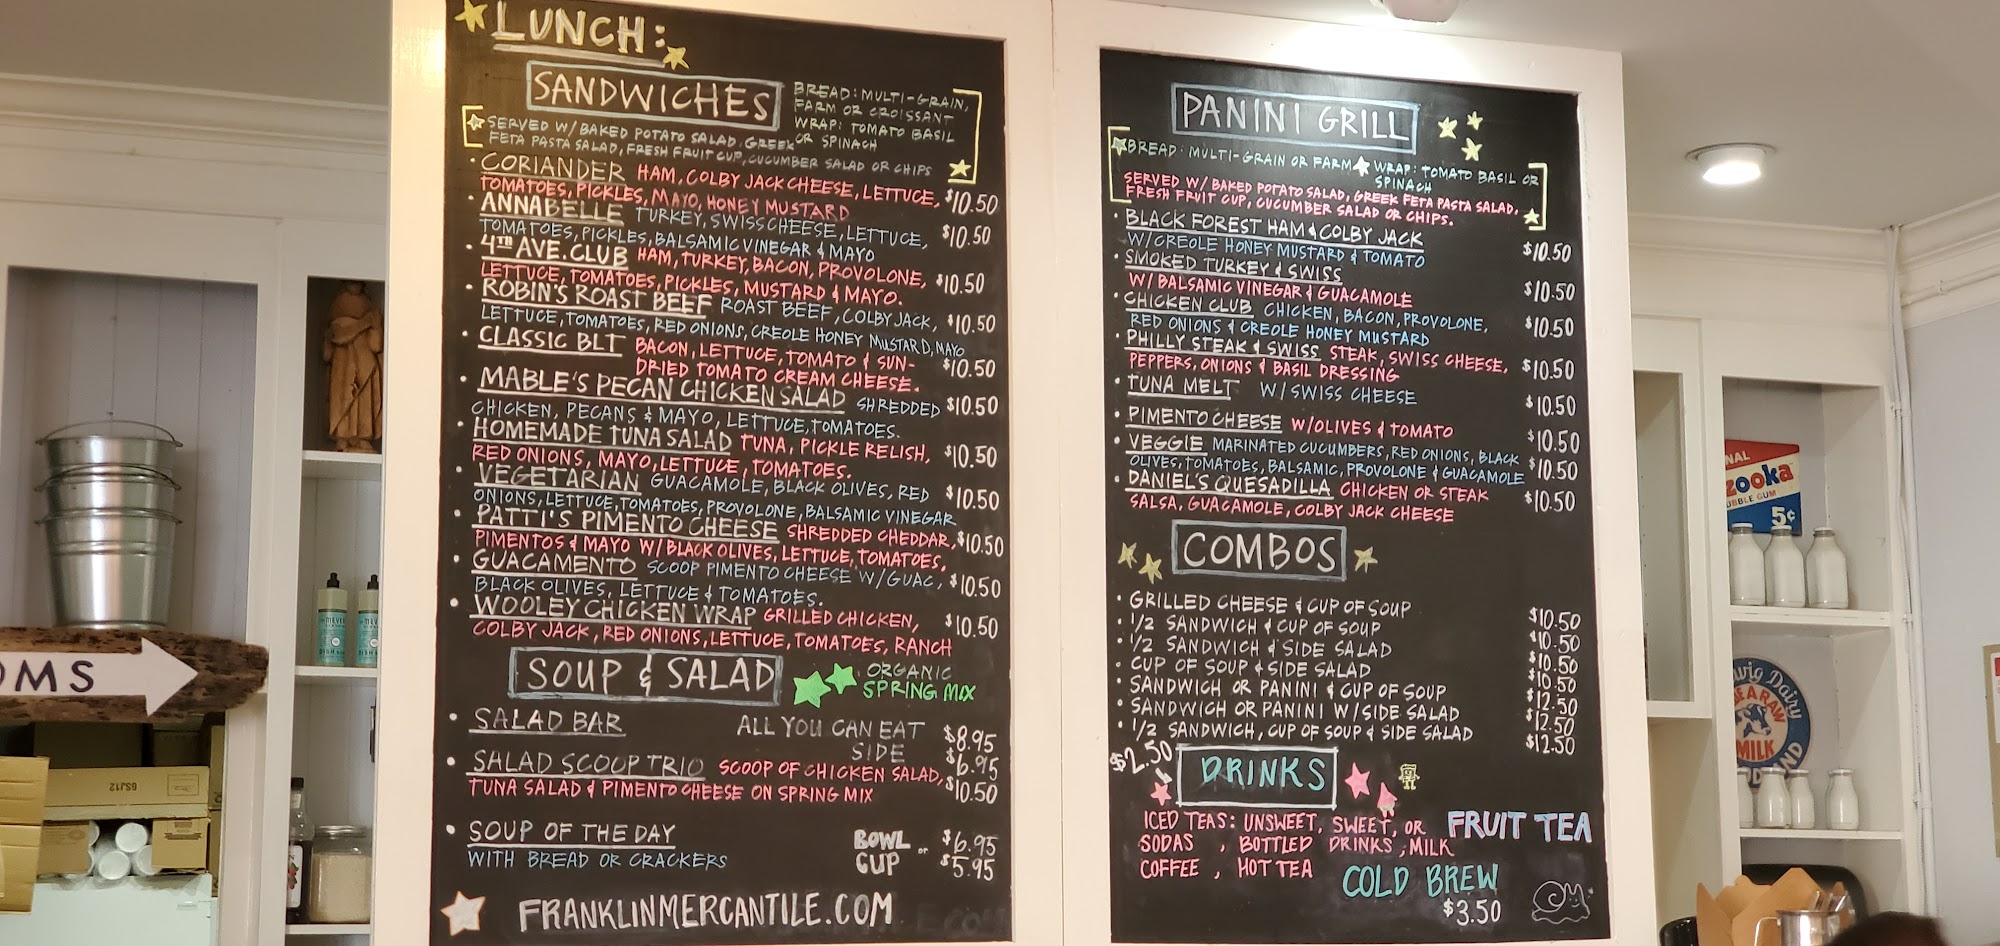 LUNCH:
SANDWICHES
BREAD: MULTI-GRAIN,
FARM OR CROISSANT
WRAP: TOMATO BASIL
OR SPINACH
SERVED W/ BAKED POTATO SALAD, GREEK
FETA PASTA SALAD, FRESH FRUIT CUP, CUCUMBER SALAD OR CHIPS
• CORIANDER HAM, COLBY JACK CHEESE, LETTUCE,
TOMATOES, PICKLES, MAYO, HONEY MUSTARD $10.50
• ANNABELLE TURKEY, SWISS CHEESE, LETTUCE,
TOMATOES, PICKLES, BALSAMIC VINEGAR & MAYO $10.50
• 4TH AVE. CLUB HAM, TURKEY, BACON, PROVOLONE,
LETTUCE, TOMATOES, PICKLES, MUSTARD & MAYO. $10.50
• ROBIN'S ROAST BEEF ROAST BEEF, COLBY JACK, $10.50
LETTUCE, TOMATOES, RED ONIONS, CREOLE HONEY MUSTARD, MAYO
• CLASSIC BLT BACON, LETTUCE, TOMATO & SUN-
DRIED TOMATO CREAM CHEESE. $10.50
• MABLE'S PECAN CHICKEN SALAD SHREDDED $10.50
CHICKEN, PECANS & MAYO, LETTUCE, TOMATOES.
• HOMEMADE TUNA SALAD TUNA, PICKLE RELISH,
RED ONIONS, MAYO, LETTUCE, TOMATOES. $10.50
• VEGETARIAN GUACAMOLE, BLACK OLIVES, RED $10.50
ONIONS, LETTUCE, TOMATOES, PROVOLONE, BALSAMIC VINEGAR
• PATTI'S PIMENTO CHEESE SHREDDED CHEDDAR, $10.50
PIMENTOS & MAYO W/ BLACK OLIVES, LETTUCE, TOMATOES.
• GUACAMENTO SCOOP PIMENTO CHEESE W/ GUAC, $10.50
BLACK OLIVES, LETTUCE & TOMATOES.
• WOOLEY CHICKEN WRAP GRILLED CHICKEN, $10.50
COLBY JACK, RED ONIONS, LETTUCE, TOMATOES, RANCH
SOUP & SALAD
ORGANIC
SPRING MIX
• SALAD BAR ALL YOU CAN EAT $8.95
SIDE $6.95
• SALAD SCOOP TRIO SCOOP OF CHICKEN SALAD,
TUNA SALAD & PIMENTO CHEESE ON SPRING MIX $10.50
• SOUP OF THE DAY BOWL OR $6.95
WITH BREAD OR CRACKERS CUP $5.95
FRANKLINMERCANTILE.COM
PANINI GRILL
BREAD: MULTI-GRAIN OR FARM WRAP: TOMATO BASIL OR
SPINACH
SERVED W/ BAKED POTATO SALAD, GREEK FETA PASTA SALAD,
FRESH FRUIT CUP, CUCUMBER SALAD OR CHIPS.
• BLACK FOREST HAM & COLBY JACK
W/ CREOLE HONEY MUSTARD & TOMATO $10.50
• SMOKED TURKEY & SWISS
W/ BALSAMIC VINEGAR & GUACAMOLE $10.50
• CHICKEN CLUB CHICKEN, BACON, PROVOLONE,
RED ONIONS & CREOLE HONEY MUSTARD $10.50
• PHILLY STEAK & SWISS STEAK, SWISS CHEESE,
PEPPERS, ONIONS & BASIL DRESSING $10.50
• TUNA MELT W/ SWISS CHEESE $10.50
• PIMENTO CHEESE W/ OLIVES & TOMATO $10.50
• VEGGIE MARINATED CUCUMBERS, RED ONIONS, BLACK
OLIVES, TOMATOES, BALSAMIC, PROVOLONE & GUACAMOLE $10.50
• DANIEL'S QUESADILLA CHICKEN OR STEAK $10.50
SALSA, GUACAMOLE, COLBY JACK CHEESE
COMBOS
• GRILLED CHEESE & CUP OF SOUP $10.50
• 1/2 SANDWICH & CUP OF SOUP $10.50
• 1/2 SANDWICH & SIDE SALAD $10.50
• CUP OF SOUP & SIDE SALAD $10.50
• SANDWICH OR PANINI & CUP OF SOUP $12.50
• SANDWICH OR PANINI W/ SIDE SALAD $12.50
• 1/2 SANDWICH, CUP OF SOUP & SIDE SALAD $12.50
$2.50
DRINKS
ICED TEAS: UNSWEET, SWEET, OR FRUIT TEA
SODAS, BOTTLED DRINKS, MILK
COFFEE, HOT TEA
COLD BREW
$3.50
OMS
NAL
ZOOKA
BUBBLE GUM
5¢
Dairy
MILK